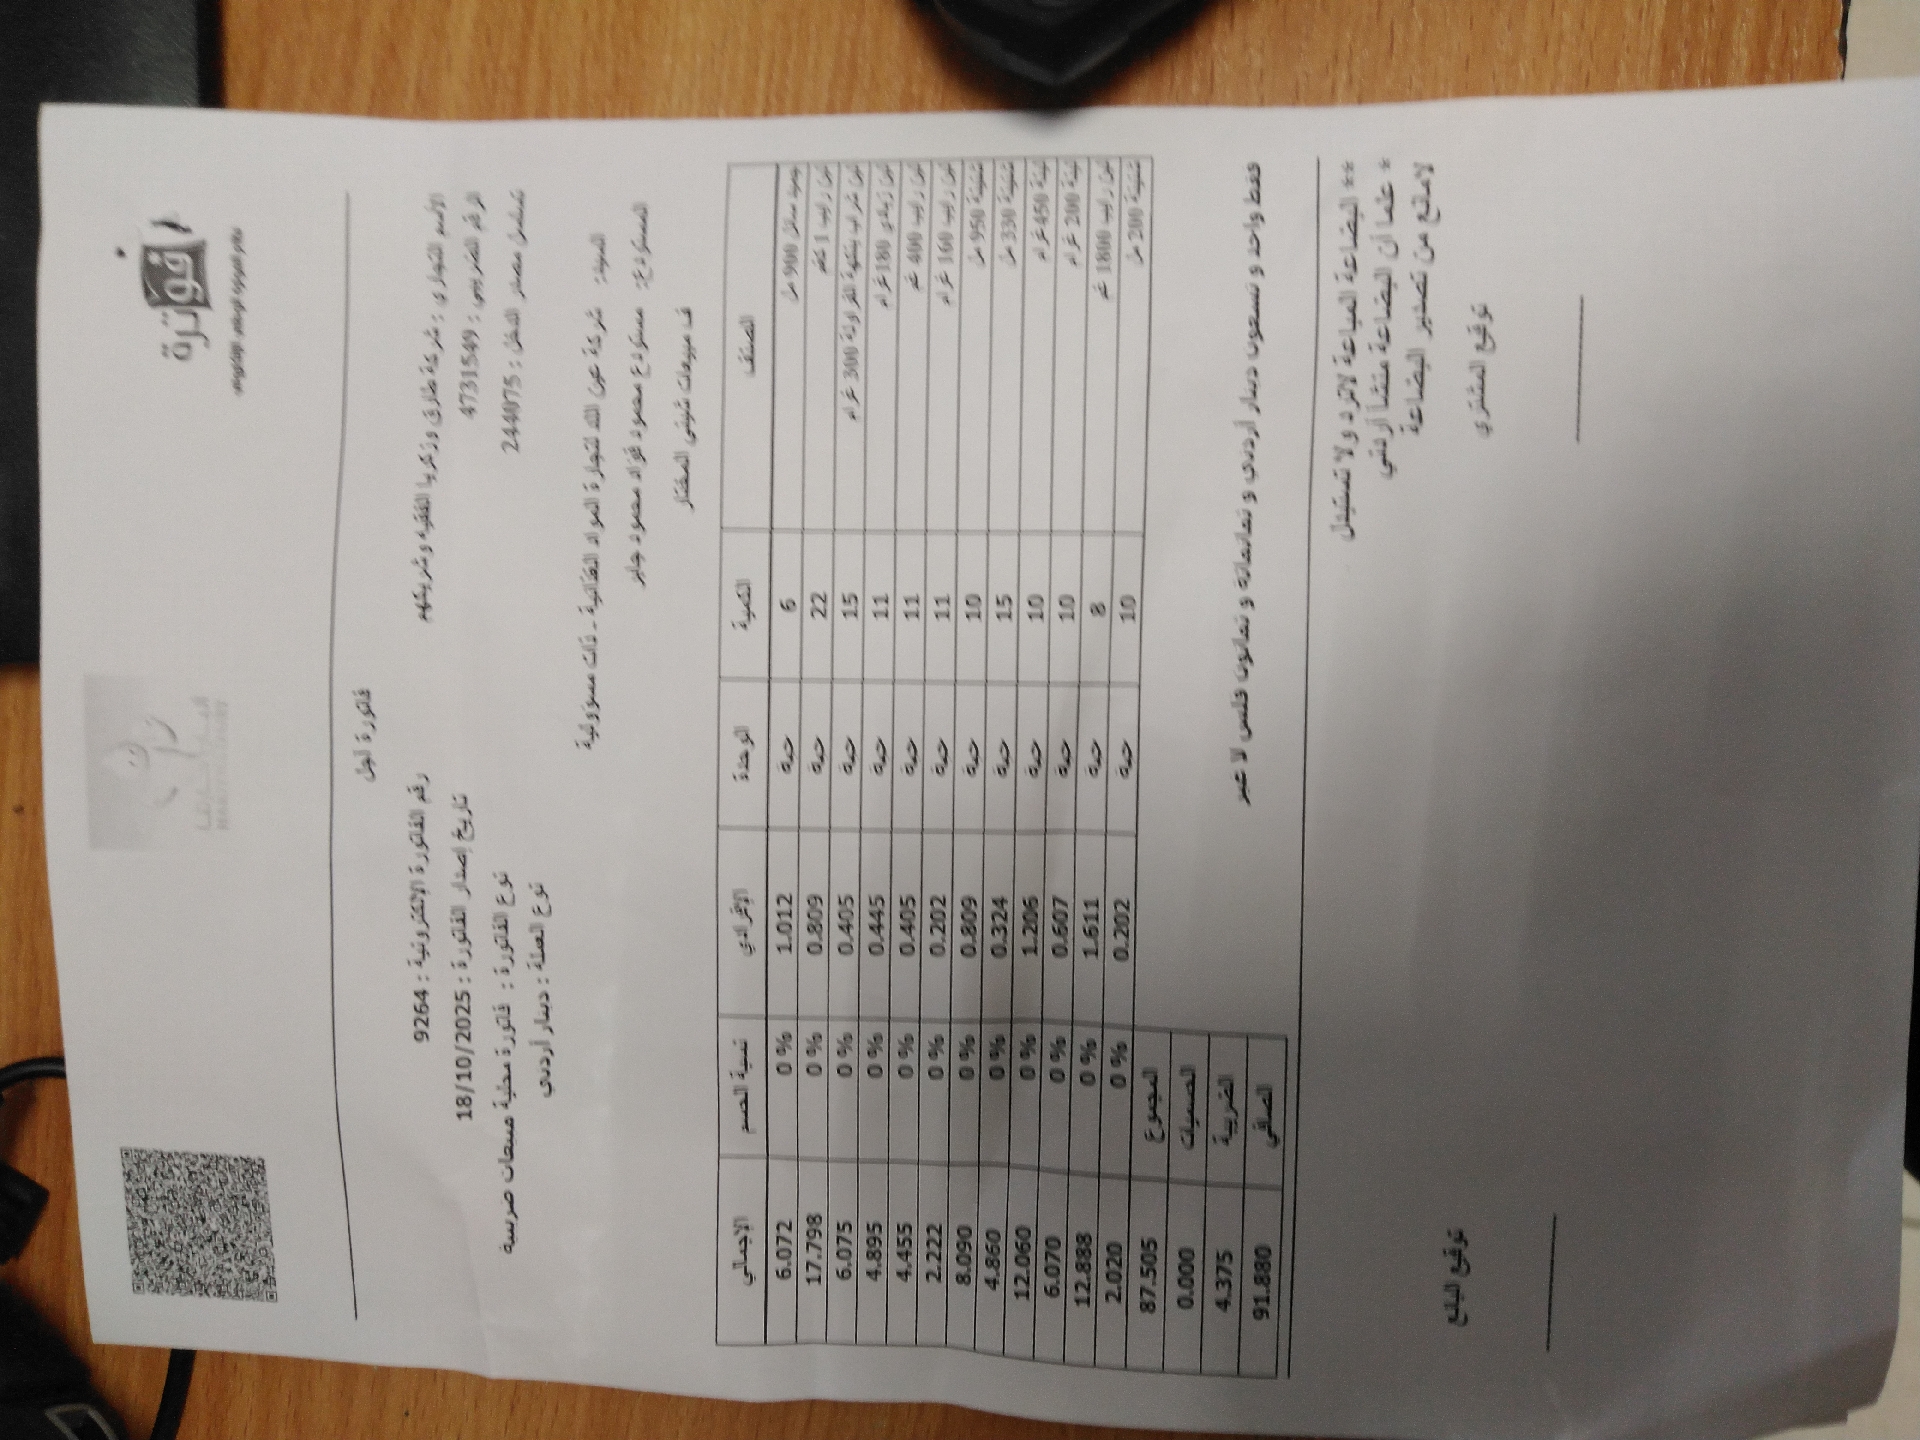 فوترة
نظام الفوترة الوطني الإلكتروني
فاتورة اجل
الأسم التجاري : شركة طارق وزكريا الفقيه وشريكهم
رقم الفاتورة الإلكترونية : 9264
الرقم الضريبي : 4731549
تاريخ إصدار الفاتورة : 18/10/2025
تسلسل مصدر الدخل : 244075
نوع الفاتورة : فاتورة محلية مبيعات ضريبية
نوع العملة : دينار أردني
السيد: شركة عين الله لتجارة المواد الغذائية - ذات مسؤولية
المستودع: مستودع محمود فؤاد محمود جابر
ف مبيعات شيني المختار
الصنف الكمية الوحدة الإفرادي نسبة الخصم الإجمالي
جميد سائل 900 مل 6 حبة 1.012 0 % 6.072
لبن رايب 1 كغم 22 حبة 0.809 0 % 17.798
لبن شراب بنكهة الفراولة 300 غرام 15 حبة 0.405 0 % 6.075
لبن زبادي 180 غرام 11 حبة 0.445 0 % 4.895
لبن رايب 400 غم 11 حبة 0.405 0 % 4.455
لبن رايب 160 غرام 11 حبة 0.202 0 % 2.222
شنينة 950 مل 10 حبة 0.809 0 % 8.090
شنينة 330 مل 15 حبة 0.324 0 % 4.860
لبنة 450 غرام 10 حبة 1.206 0 % 12.060
لبنة 200 غرام 10 حبة 0.607 0 % 6.070
لبن رايب 1800 غم 8 حبة 1.611 0 % 12.888
شنينة 200 مل 10 حبة 0.202 0 % 2.020
المجموع 87.505
الخصميات 0.000
الضريبة 4.375
الصافي 91.880
فقط واحد و تسعون دينار أردني و ثمانمائة و ثمانون فلس لا غير
** البضاعة المباعة لاترد و لا تستبدل
* علما أن البضاعة منشأ أردني
لامانع من تصدير البضاعة
توقيع المشتري
توقيع البائع